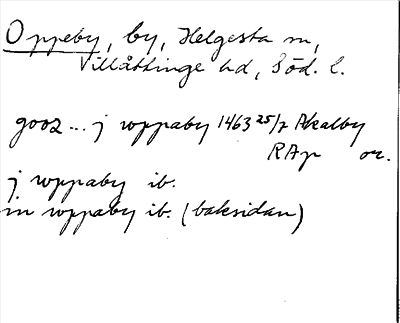 Oppeby, by, Helgesta sn,
Villåttinge hd, Söd. l.
gooz... j wppaby 1463 25/7 Akalby
RAp or.
j wppaby ib.
in wppaby ib. (baksidan)